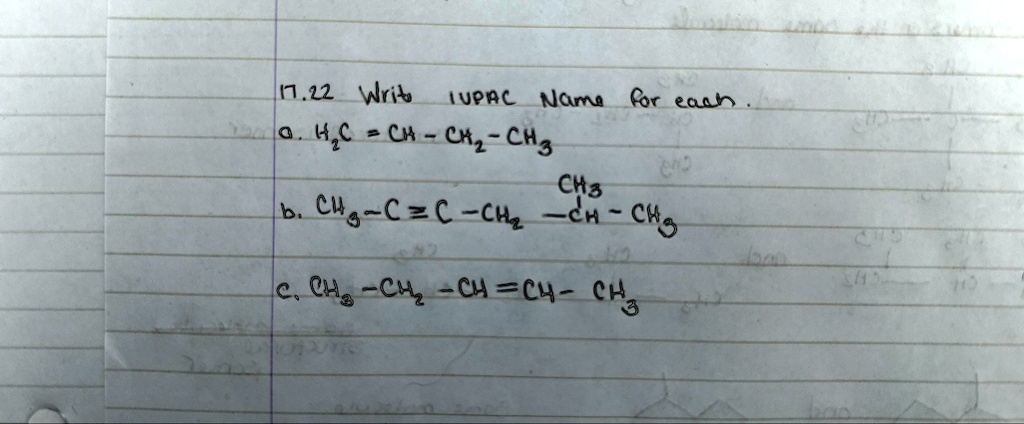 17.22 Write IUPAC Name for each.
a. H₂C = CH - CH₂ - CH₃
CH₃
b. CH₃ - C ≡ C - CH₂ - CH - CH₃
c. CH₃ - CH₂ - CH = CH - CH₃